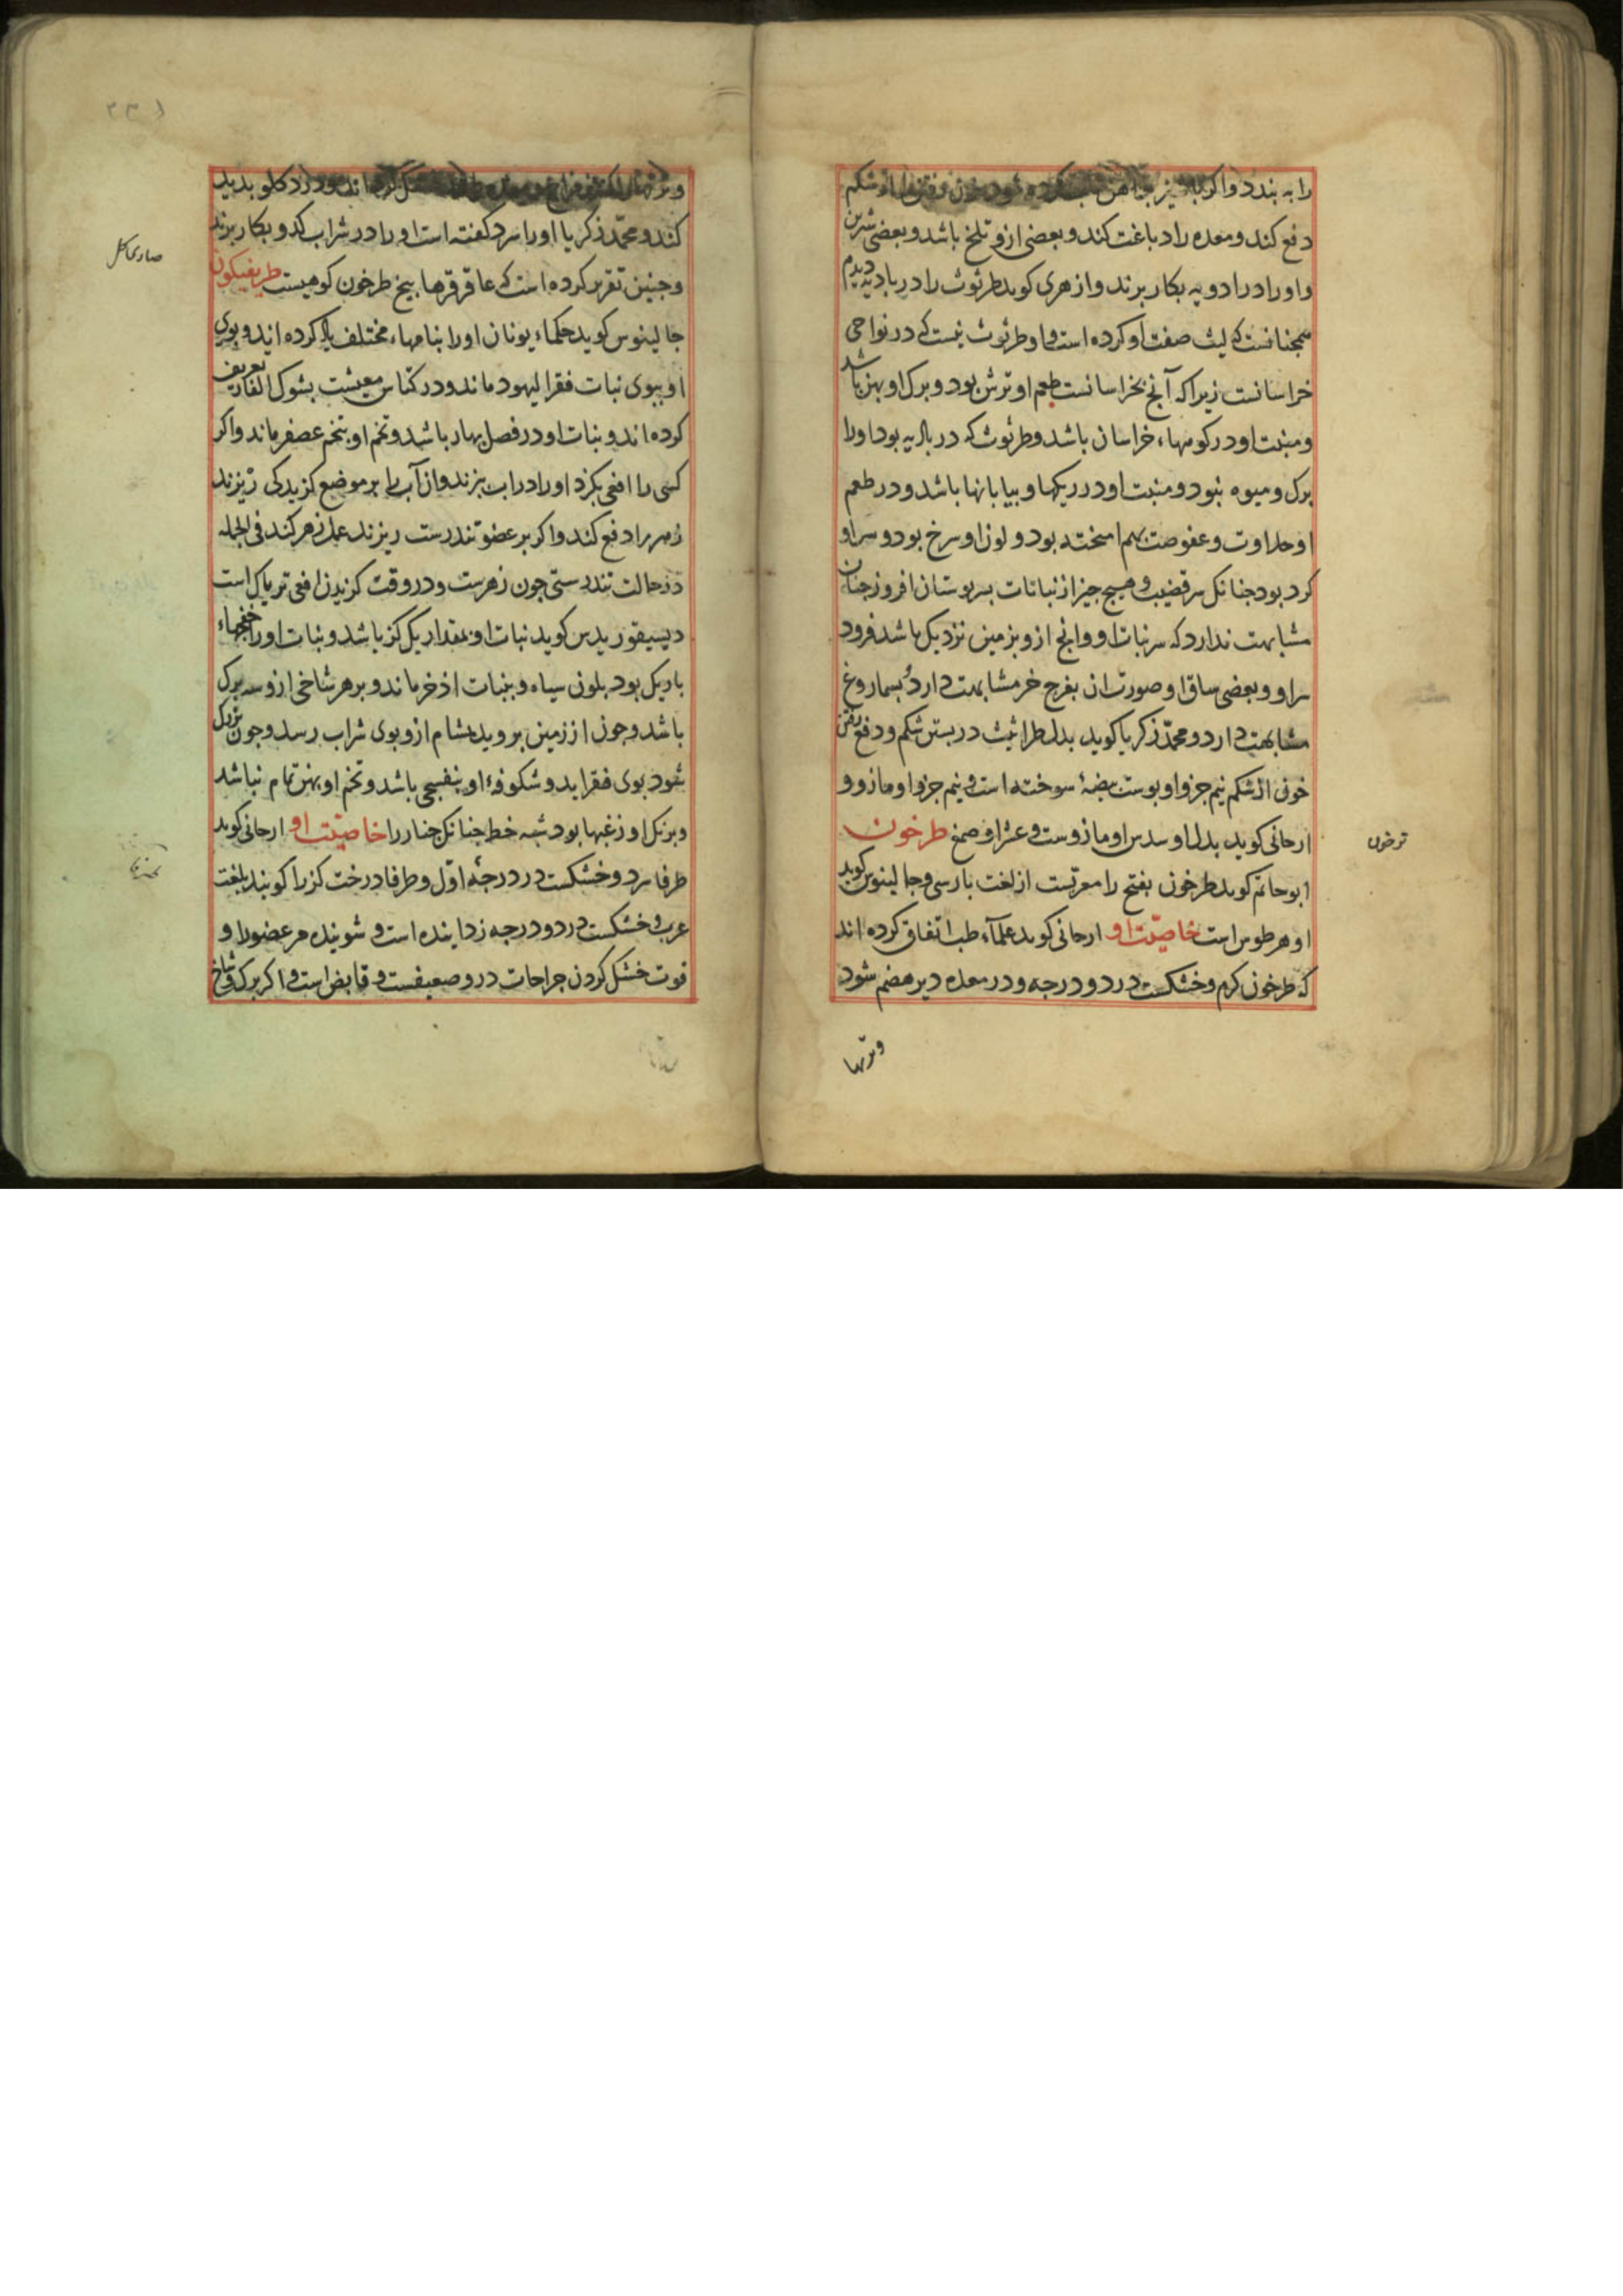 را به بندد واکر با شیر خون رفتن را از شکم
دفع کند و معده را دباغت کند و بعضی ازو تلخ باشد و بعضی شیرین
و او را در ادویه بکار برند و ازهری کوید طرثوث را در بادیه دیدم
همجنانست که لیث صفت او کرده است و او طرثوث نیست که در نواحی
خراسانست زیرا که آنج بخراسانست طعم او ترش بود و برک او بهن باشد
و منبت او در کوهها، خراسان باشد و طرثوث که در بادیه بود او را
برک و میوه نبود و منبت او در ریکها و بیابانها باشد و در طعم
او حلاوت و عفوصت بهم امیخته بود و لون او سرخ بود و سر او
کرد بود جنانک سر قضیب و هیج جیز از نباتات ببر بوستان افروز جنان
مشابهت ندارد که سر نبات او و انج ازو بزمین نزدیک باشد فرود
سر او و بعضی ساق او صورت ان بفرج خر مشابهت دارد بسماروغ
مشابهت دارد و محمد زکریا کوید بدل طراثیث در بستن شکم و دفع رفتن
خون از شکم نیم جزو او بوست بیضهٔ سوخته است و نیم جزو او مازو و
ارجانی کوید بدل او سدس او مازوست و عشر او صمغ طرخون
ابو حاتم کوید طرخون بفتح را معربست از لغت بارسی و جالینوس کوید
او هرطوس است خاصیّت او ارجانی کوید علمآء طب اتفاق کرده اند
که طرخون کرم و خشکست در دو درجه و در معده دیر هضم شود
و تریها
ترخون
و تریها درد کلو بدید
کند و محمّد زکریا او را سرد کفته است او را در شراب کدو بکار برند
و جنین تقریر کرده است که عاقرقرحا بیخ طرخون کوهیست طریفیکون
جالینوس کوید حکماء یونان او را بنامهاء مختلف یاد کرده اند و بوی
او ببوی نبات فقر الیهود ماند و در کتاس معیشت بشوک الفار تعریف
کرده اند و نبات او در فصل بهار باشد و تخم او بتخم عصفر ماند و اکر
کسی را افعی بکزد او را در اب بزند و از آب را بر موضع کزیدکی ریزند
زهر را دفع کند و اکر بر عضو تندرست ریزند عمل زهر کند فی الجمله
در حالت تندرستی جون زهرست و در وقت کزیدن افعی تریاک است
دیسیقوریدس کوید نبات او بمقدار یک کز باشد و نبات او را خفجهاء
باریک بود بلون سیاه و بنبات اذخر ماند و بر هر شاخی ازو سه برک
باشد و جون از زمین بروید بمشام ازو بوی شراب رسد و جون بزرک
شود بوی فقر اید و شکوفهٔ او بنفسجی باشد و تخم او بهن تمام نباشد
و برنک او زغبها بود شبه خط جنانک جنار را خاصیّت او ارجانی کوید
طرفا سرد و خشکست در درجهٔ اوّل و طرفا درخت کز را کویند بلغت
عرب و خشکست در دو درجه زداینده است و شوینده مر عضو را و
قوت خشک کردن جراحات درو ضعیفست و قابض است و اکر برک و شاخ